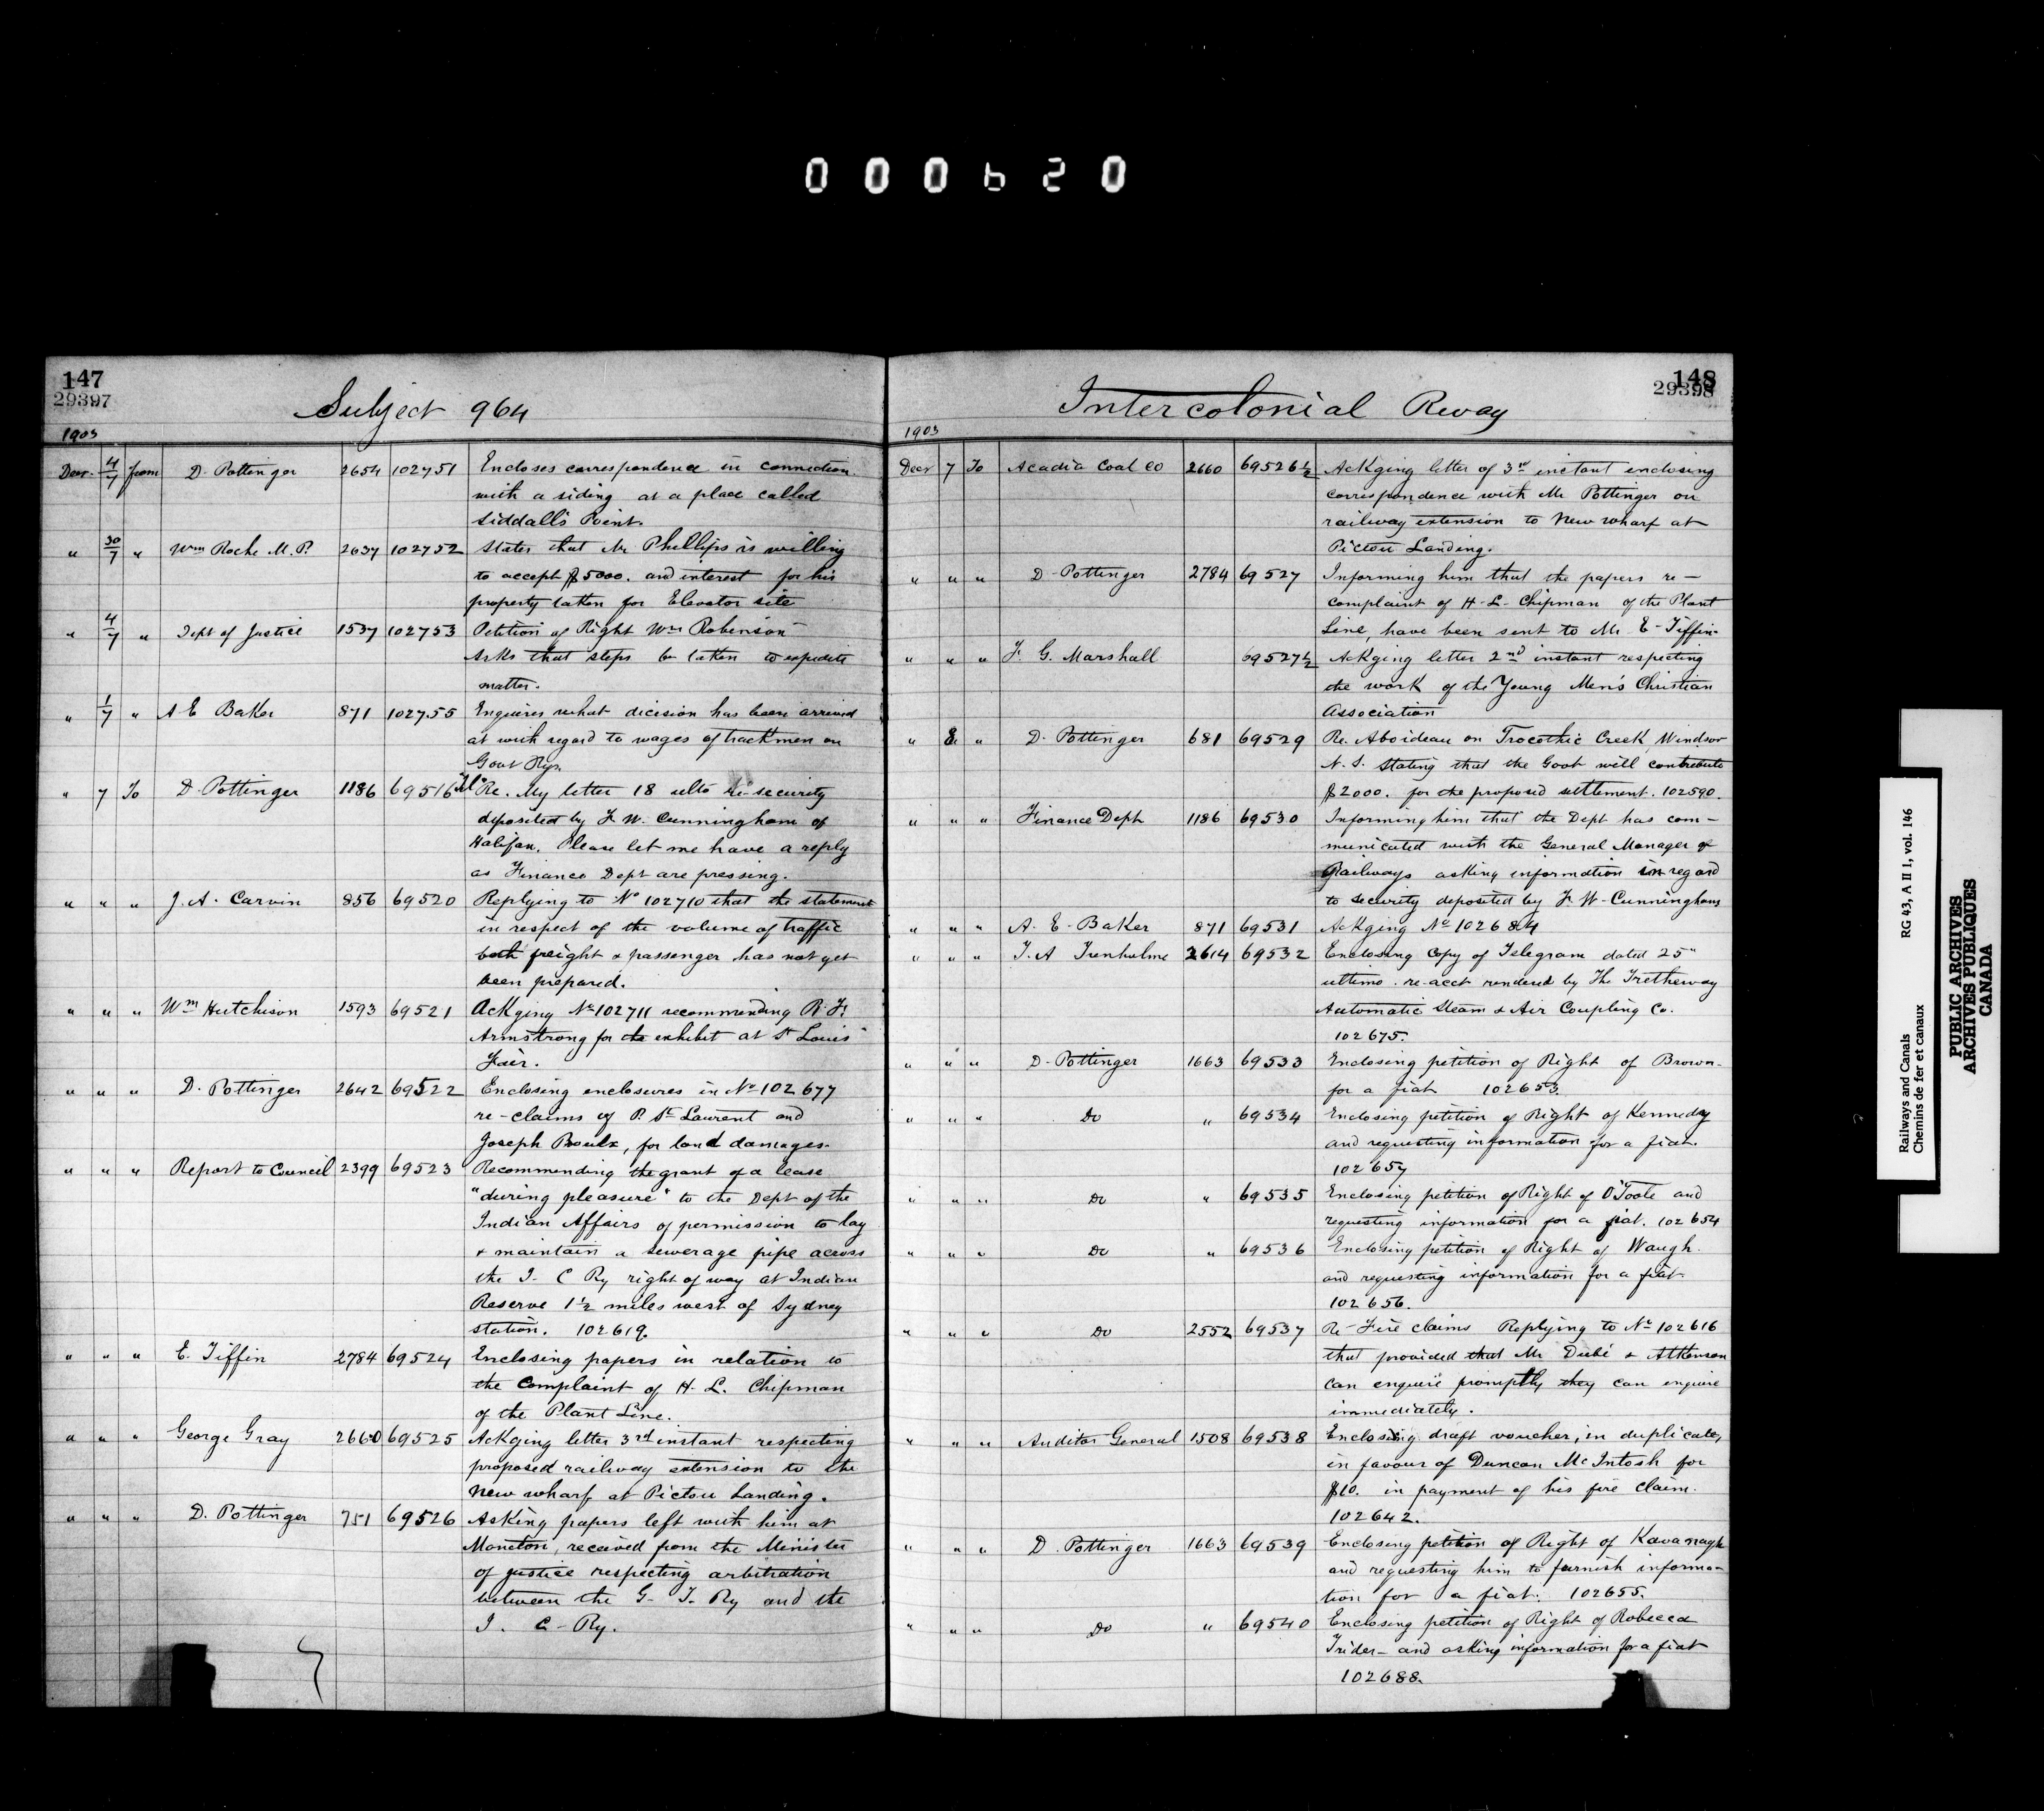 000620
147
29397
Subject 964
1903
Decr. 4/7 from D. Pottinger 2654 102751 Encloses correspondence in connection
with a siding at a place called
Siddall's Point.
" 30/7 " Wm Roche M.P. 2637 102752 States that Mr Phillips is willing
to accept $5000. and interest for his
property taken for Elevator site
" 4/7 " Dept of Justice 1537 102753 Petition of Right Wm Robinson
Asks that steps be taken to expedite
matter.
" 1/7 " A E Baker 871 102755 Enquires what decision has been arrived
at with regard to wages of trackmen on
Govt Rys.
" 7 To D. Pottinger 1186 69516 Re. My letter 18 ulto re-security
deposited by F. W. Cunningham of
Halifax. Please let me have a reply
as Finance Dept are pressing.
" " " J. A. Carvin 856 69520 Replying to No 102710 that the statement
in respect of the volume of traffic
both freight & passenger has not yet
been prepared.
" " " Wm Hutchison 1593 69521 Ackging No 102711 recommending R. F.
Armstrong for the exhibit at St Louis
Fair.
" " " D. Pottinger 2642 69522 Enclosing enclosures in No 102677
re-claims of P. St Laurent and
Joseph , for land damages.
" " " Report to Council 2399 69523 Recommending the grant of a lease
"during pleasure" to the Dept of the
Indian Affairs of permission to lay
& maintain a sewerage pipe across
the I. C Ry right of way at Indian
Reserve 1 1/2 miles west of Sydney
station. 102619.
" " " E. Tiffin 2784 69524 Enclosing papers in relation to
the Complaint of H. L. Chipman
of the Plant Line.
" " " George Gray 2660 69525 Ackging letter 3rd instant respecting
proposed railway extension to the
New wharf at Pictou Landing.
" " " D. Pottinger 751 69526 Asking papers left with him at
Moncton, received from the Minister
of justice respecting arbitration
between the G. T. Ry and the
I. C. Ry.
148
29398
Intercolonial Rway
1903
Decr 7 To Acadia Coal Co 2660 69526 1/2 Ackging letter of 3rd instant enclosing
correspondence with Mr Pottinger on
railway extension to New wharf at
Pictou Landing.
" " " D. Pottinger 2784 69527 Informing him that the papers re-
complaint of H. L. Chipman of the Plant
Line, have been sent to Mr E. Tiffin.
" " " F. G. Marshall 69527 1/2 Ackging letter 2nd instant respecting
the work of the Young Men's Christian
Association
" 8 " D. Pottinger 681 69529 Re. Aboideau on Trocothic Creek, Windsor
N.S. stating that the Govt will contribute
$2000. for the proposed settlement. 102590.
" " " Finance Dept 1186 69530 Informing him that the Dept has com-
municated with the General Manager of
Railways asking information in regard
to security deposited by F. W. Cunningham
" " " A. E. Baker 871 69531 Ackging No 102684
" " " T. A Trenholme 2614 69532 Enclosing Copy of Telegram dated 25"
ultimo. re-acct rendered by The Tretheway
Automatic Steam & Air Coupling Co.
102675.
" " " D. Pottinger 1663 69533 Enclosing petition of Right of Brown
for a fiat 102653.
" " " Do " 69534 Enclosing petition of Right of Kennedy
and requesting information for a fiat.
102657
" " " Do " 69535 Enclosing petition of Right of O'Toole and
requesting information for a fiat. 102654
" " " Do " 69536 Enclosing petition of Right of Waugh
and requesting information for a fiat.
102656.
" " " Do 2552 69537 Re-Fire claims Replying to No 102616
that provided that Mr Dubé & Atkinson
can enquire promptly they can enquire
immediately.
" " " Auditor General 1508 69538 Enclosing draft voucher, in duplicate,
in favour of Duncan McIntosh for
$10. in payment of his fire claim.
102642.
" " " D. Pottinger 1663 69539 Enclosing petition of Right of Kavanagh
and requesting him to furnish informa-
tion for a fiat. 102655.
" " " Do " 69540 Enclosing petition of Right of Rebecca
Trider - and asking information for a fiat
102688.
Railways and Canals RG 43, A II 1, vol. 146
Chemins de fer et canaux
PUBLIC ARCHIVES
ARCHIVES PUBLIQUES
CANADA